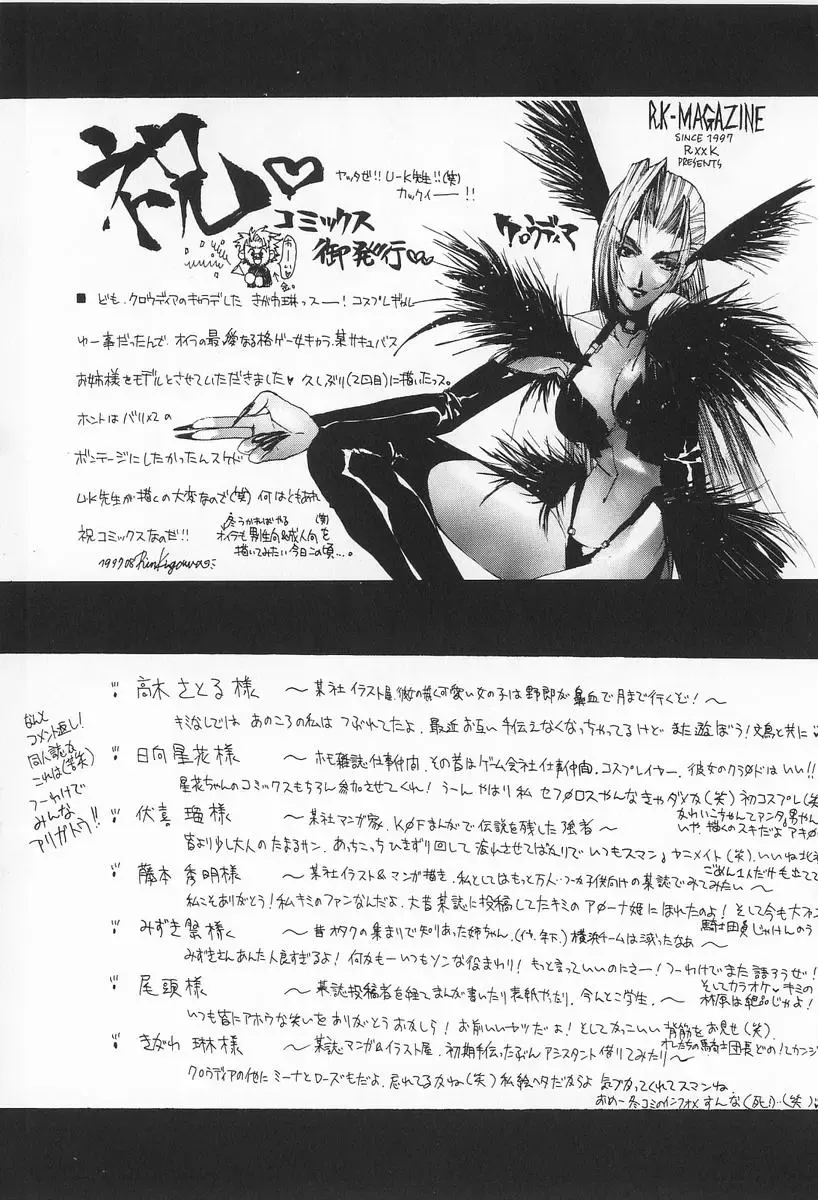 R.K-MAGAZINE
SINCE 1997
RxxK
PRESENTS
祝♡
ヤッタぜ!! U-K先生!!(笑)
カックイー!!
コミックス
御発行♡
クロウディア
■ ども、クロウディアのキャラデした きがわ琳っスー! コスプレギャル
ゆー事だったんで、オイラの最愛なる格ゲー女キャラ、某サキュバス
お姉様をモデルとさせていただきました♥ 久しぶり(2回目)に描いたっス。
ホントはバリバリの
ボンテージにしたかったんスケド
U.K先生が描くの大変なので(笑) 何はともあれ
祝コミックスなのだ!!
オイラも男性向&成人向を
描いてみたい今日この頃…。
1997.08
なんと
コメント返し!
同人誌な
これは(苦笑)
つーわけで
みんな
アリガトウ!!
高木さとる様 〜某社イラスト屋、彼の描く可愛い女の子は野郎が鼻血で月まで行くぞ!〜
キミなしでは あのころの私は つぶれてたよ、最近お互い手伝えなくなっちゃってるけど また遊ぼう!
日向星花様 〜ホモ雑誌仕事仲間、その昔はゲーム会社仕事仲間、コスプレイヤー、彼女のクラ○ドは いい!!
星花ちゃんのコミックスもちろん参加させてくれ! うーん やはり私 セフ○ロスやんなきゃダメカ(笑) 初コスプレ(笑
伏喜 瑠様 〜某社マンガ家、K○Fまんがで伝説を残した強者〜
皆より少し大人のたよるサン、あっちこっちひきずり回して 疲れさせてばかりで いつもスマン。ヤニメイト(笑)
藤本 秀明様 〜某社イラスト&マンガ描き、私としてはもっと万人…つーか子供向けの某誌でみてみたい〜
私こそありがとう! 私キミのファンなんだよ、大昔某誌に投稿してたキミのア○ーナ姫にほれたのよ! そして今も大ファン
みずき祭様 〜昔オタクの集まりで知りあった姉ちゃん、横浜チームは滅ったなあ〜
みずきさんあんた人良すぎるよ! 何かもーいつもソンなやくまわり! もっと言っていいのにさー! つーわけでまた語ろうぜ!
そしてカラオケ キミの
尾頭様 〜某誌投稿者を経て まんが書いたり表紙やったり、今んとこ学生。〜
いつも皆にアホウな笑いをありがとう おかしら! お前いいヤツだよ! としてかっこいい 背筋をお見せ(笑)
きがわ 琳様 〜某誌マンガ&イラスト屋、初期手伝ったぶん アシスタント借りてみたり〜
クロウディアの他にミーナとローズもだよ、忘れてるかね(笑) 私絵ヘタだからよ 気づかってくれてスマンね、
おめー冬コミのインフォメすんな(死)…(笑)